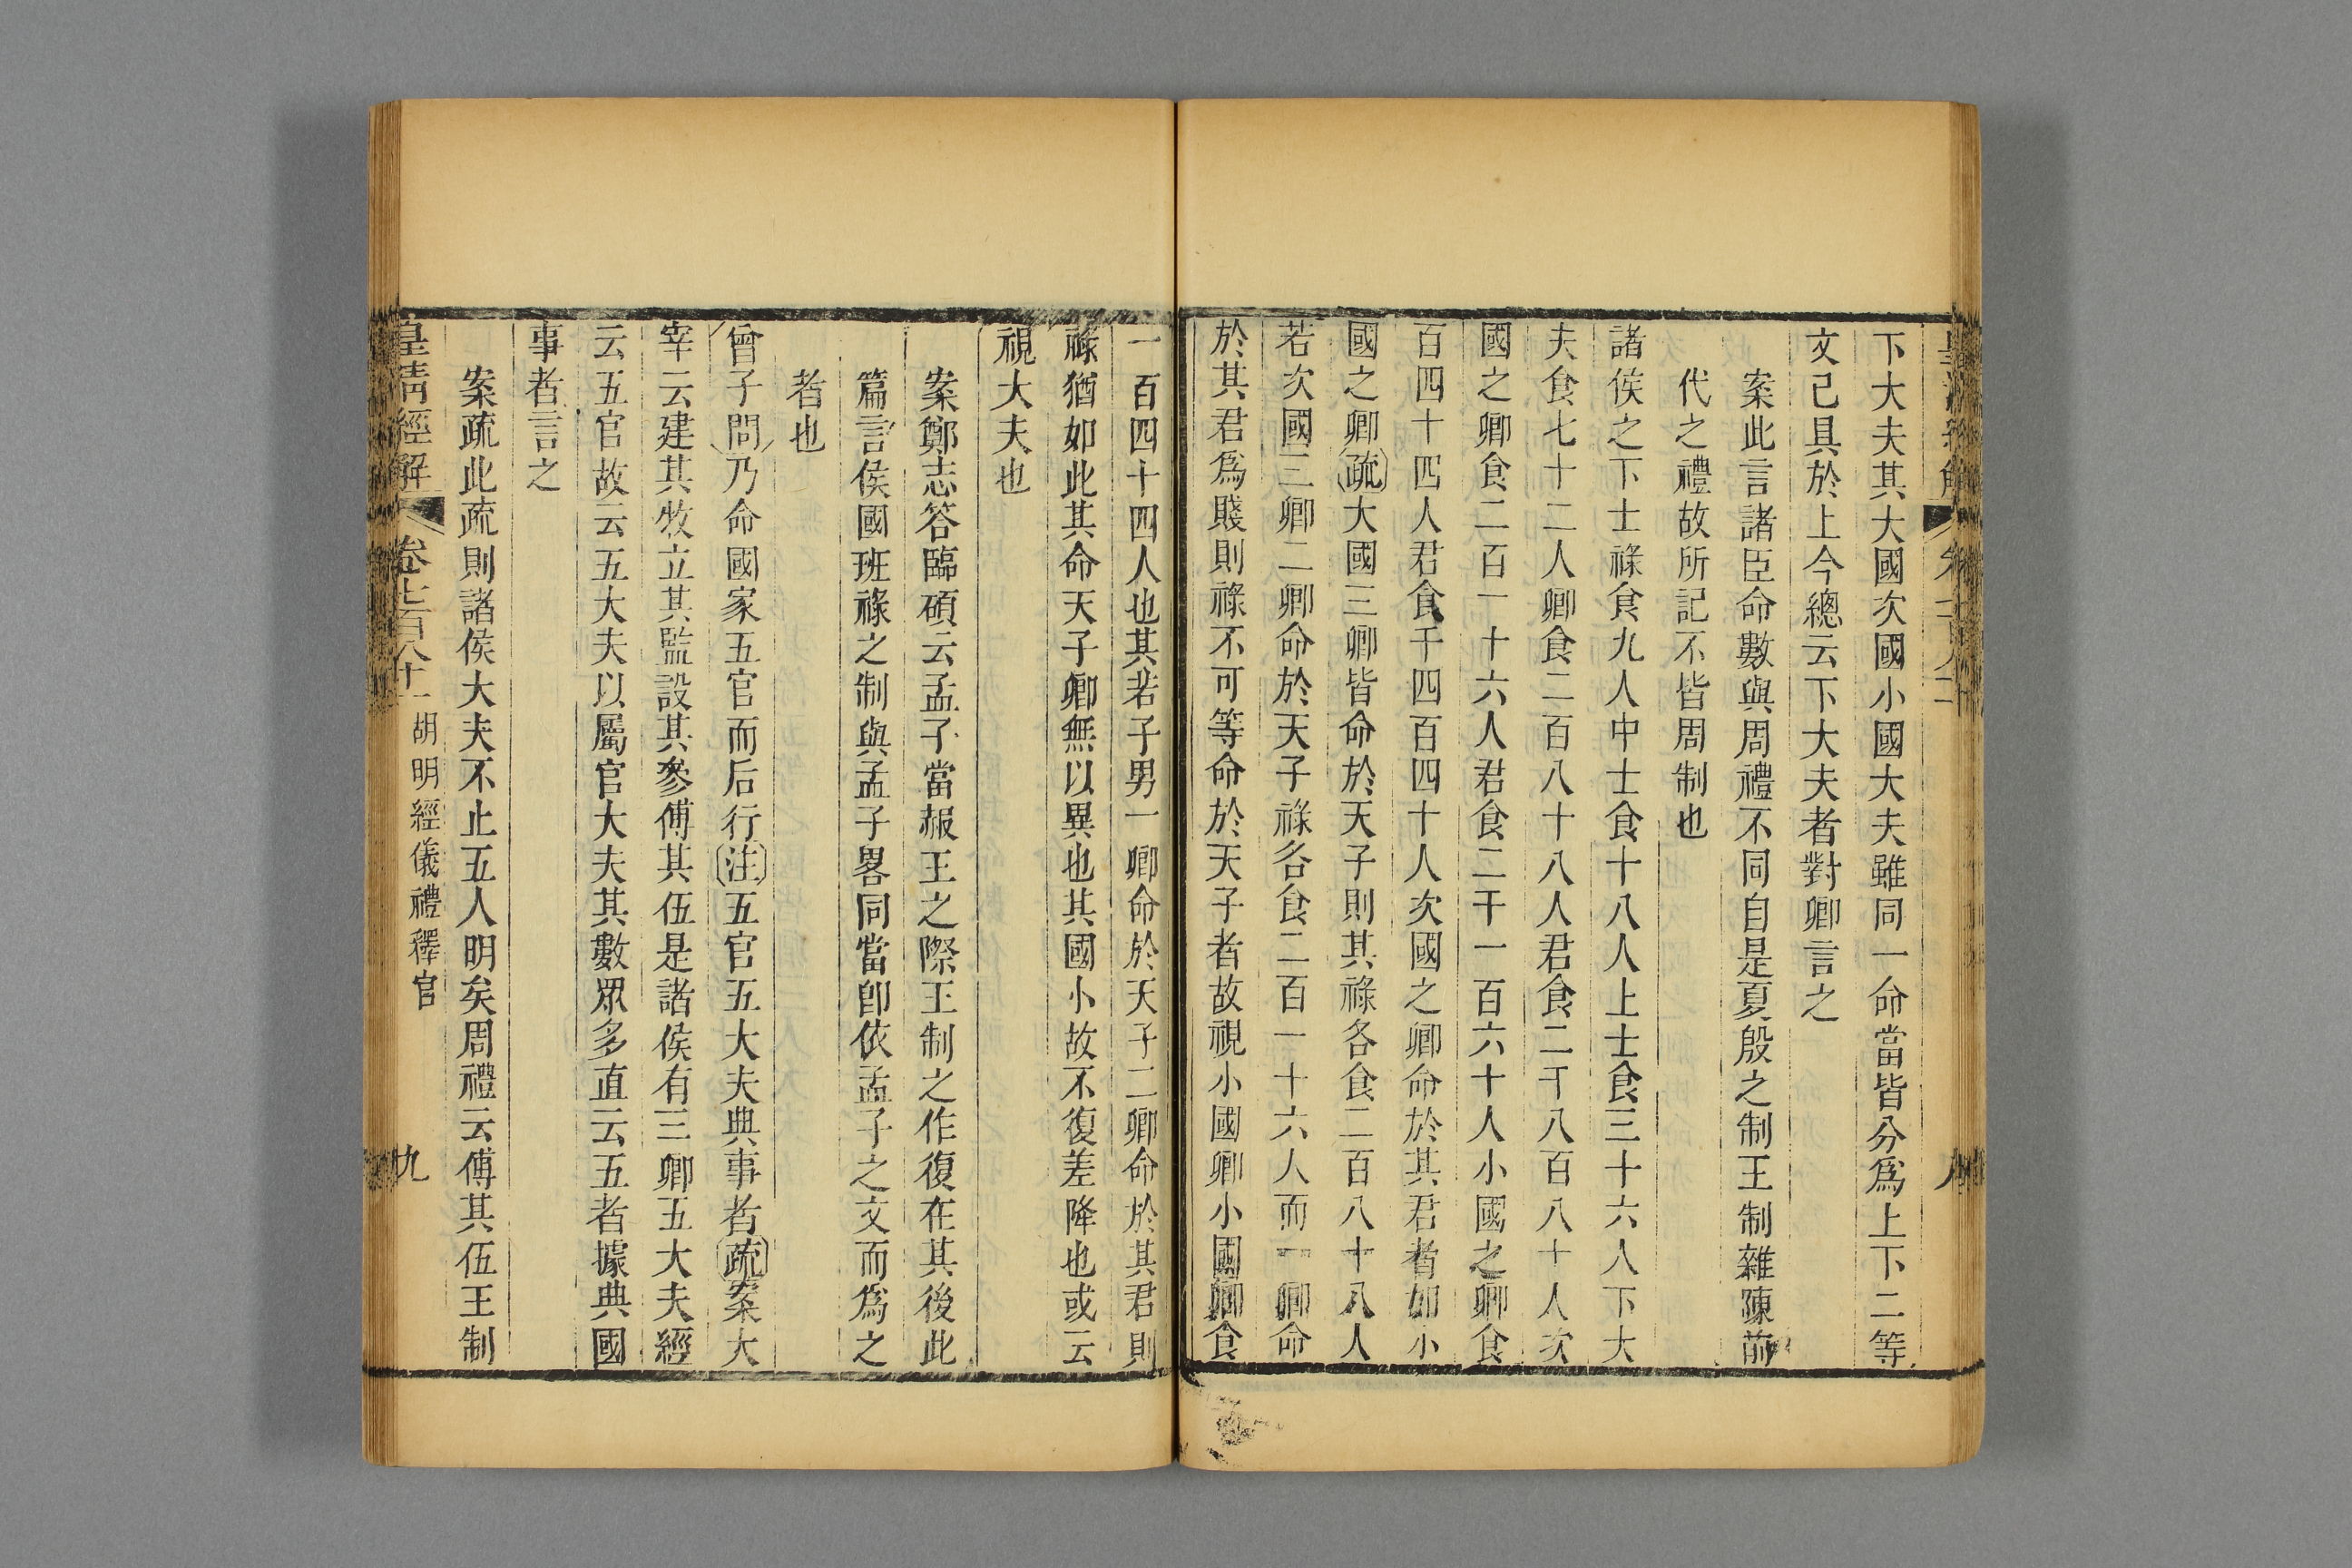 下大夫其大國次國小國大夫雖同一命當皆分爲上下二等
文已具於上今總云下大夫者對卿言之
案此言諸臣命數與周禮不同自是夏殷之制王制雜陳前
代之禮故所記不皆周制也
諸侯之下士祿食九人中士食十八人上士食三十六人下大
夫食七十二人卿食二百八十八人君食二千八百八十人次
國之卿食二百一十六人君食二千一百六十人小國之卿食
百四十四人君食千四百四十人次國之卿命於其君者如小
國之卿疏大國三卿皆命於天子則其祿各食二百八十八人
若次國三卿二卿命於天子祿各食二百一十六人而一卿命
於其君爲賤則祿不可等命於天子者故視小國卿小國卿食
一百四十四人也其若子男一卿命於天子二卿命於其君則
祿猶如此其命天子卿無以異也其國小故不復差降也或云
視大夫也
案鄭志答臨碩云孟子當赧王之際王制之作復在其後此
篇言侯國班祿之制與孟子畧同當卽依孟子之文而爲之
者也
曾子問乃命國家五官而后行注五官五大夫典事者疏案大
宰云建其牧立其監設其參傅其伍是諸侯有三卿五大夫經
云五官故云五大夫以屬官大夫其數眾多直云五者據典國
事者言之
案疏此疏則諸侯大夫不止五人明矣周禮云傅其伍王制
皇淸經解 卷七百八十一 胡明經儀禮釋官 九